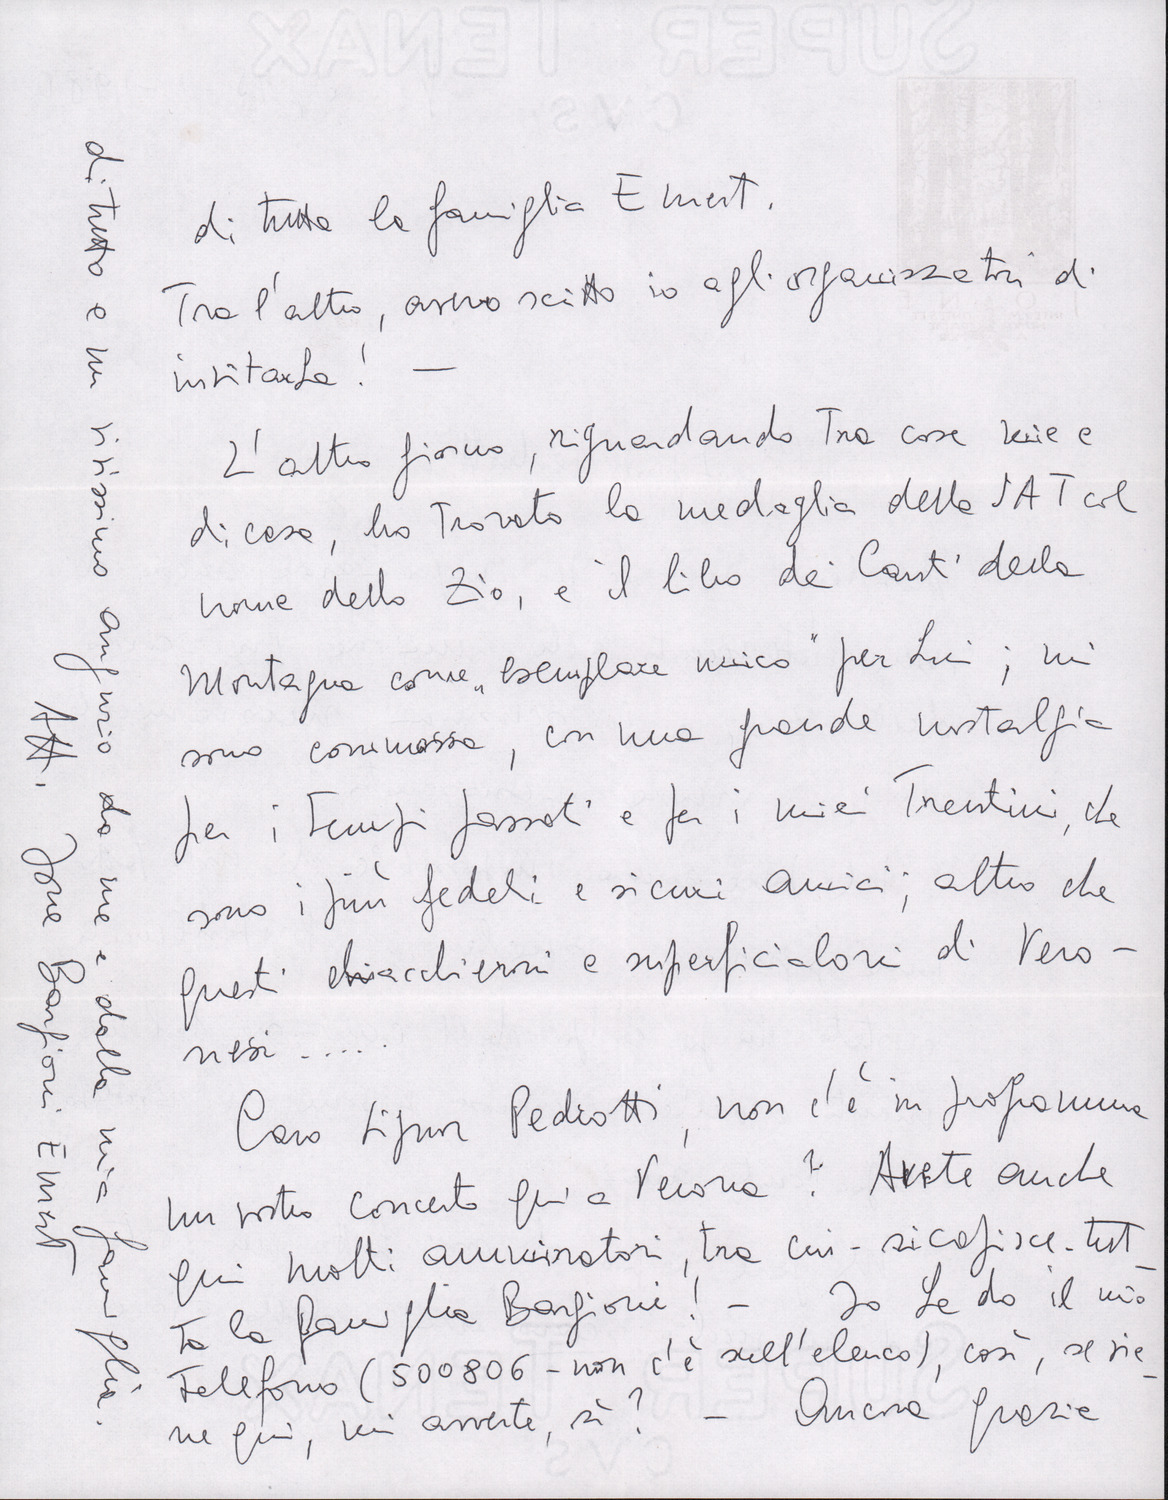 di tutta la famiglia Emert.
Tra l'altro, avevo scritto io agli organizzatori di
invitarLa! —
L'altro giorno, riguardando tra cose mie e
di casa, ho trovato la medaglia della SAT col
nome dello Zio, e il libro dei Canti della
Montagna come „esemplare unico" per Lui; mi
sono commossa, con una grande nostalgia
per i tempi passati e per i miei Trentini, che
sono i più fedeli e sicuri amici; altro che
questi chiacchieroni e superficialoni di Vero-
nesi .....
Caro Signor Pedrotti, non c'è in programma
un vostro concerto qui a Verona? Avete anche
qui molti ammiratori, tra cui - si capisce - tut-
ta la famiglia Bargioni! - Io Le do il mio
telefono (500806 - non c'è sull'elenco), così, se vie-
ne qui, mi avverte, sì? - Ancora grazie
di tutto e un vivissimo augurio da me e dalla mia famiglia.
Aff. Jone Bargioni Emert
SUPER TENAX
CVS
SUPER TENAX
CVS